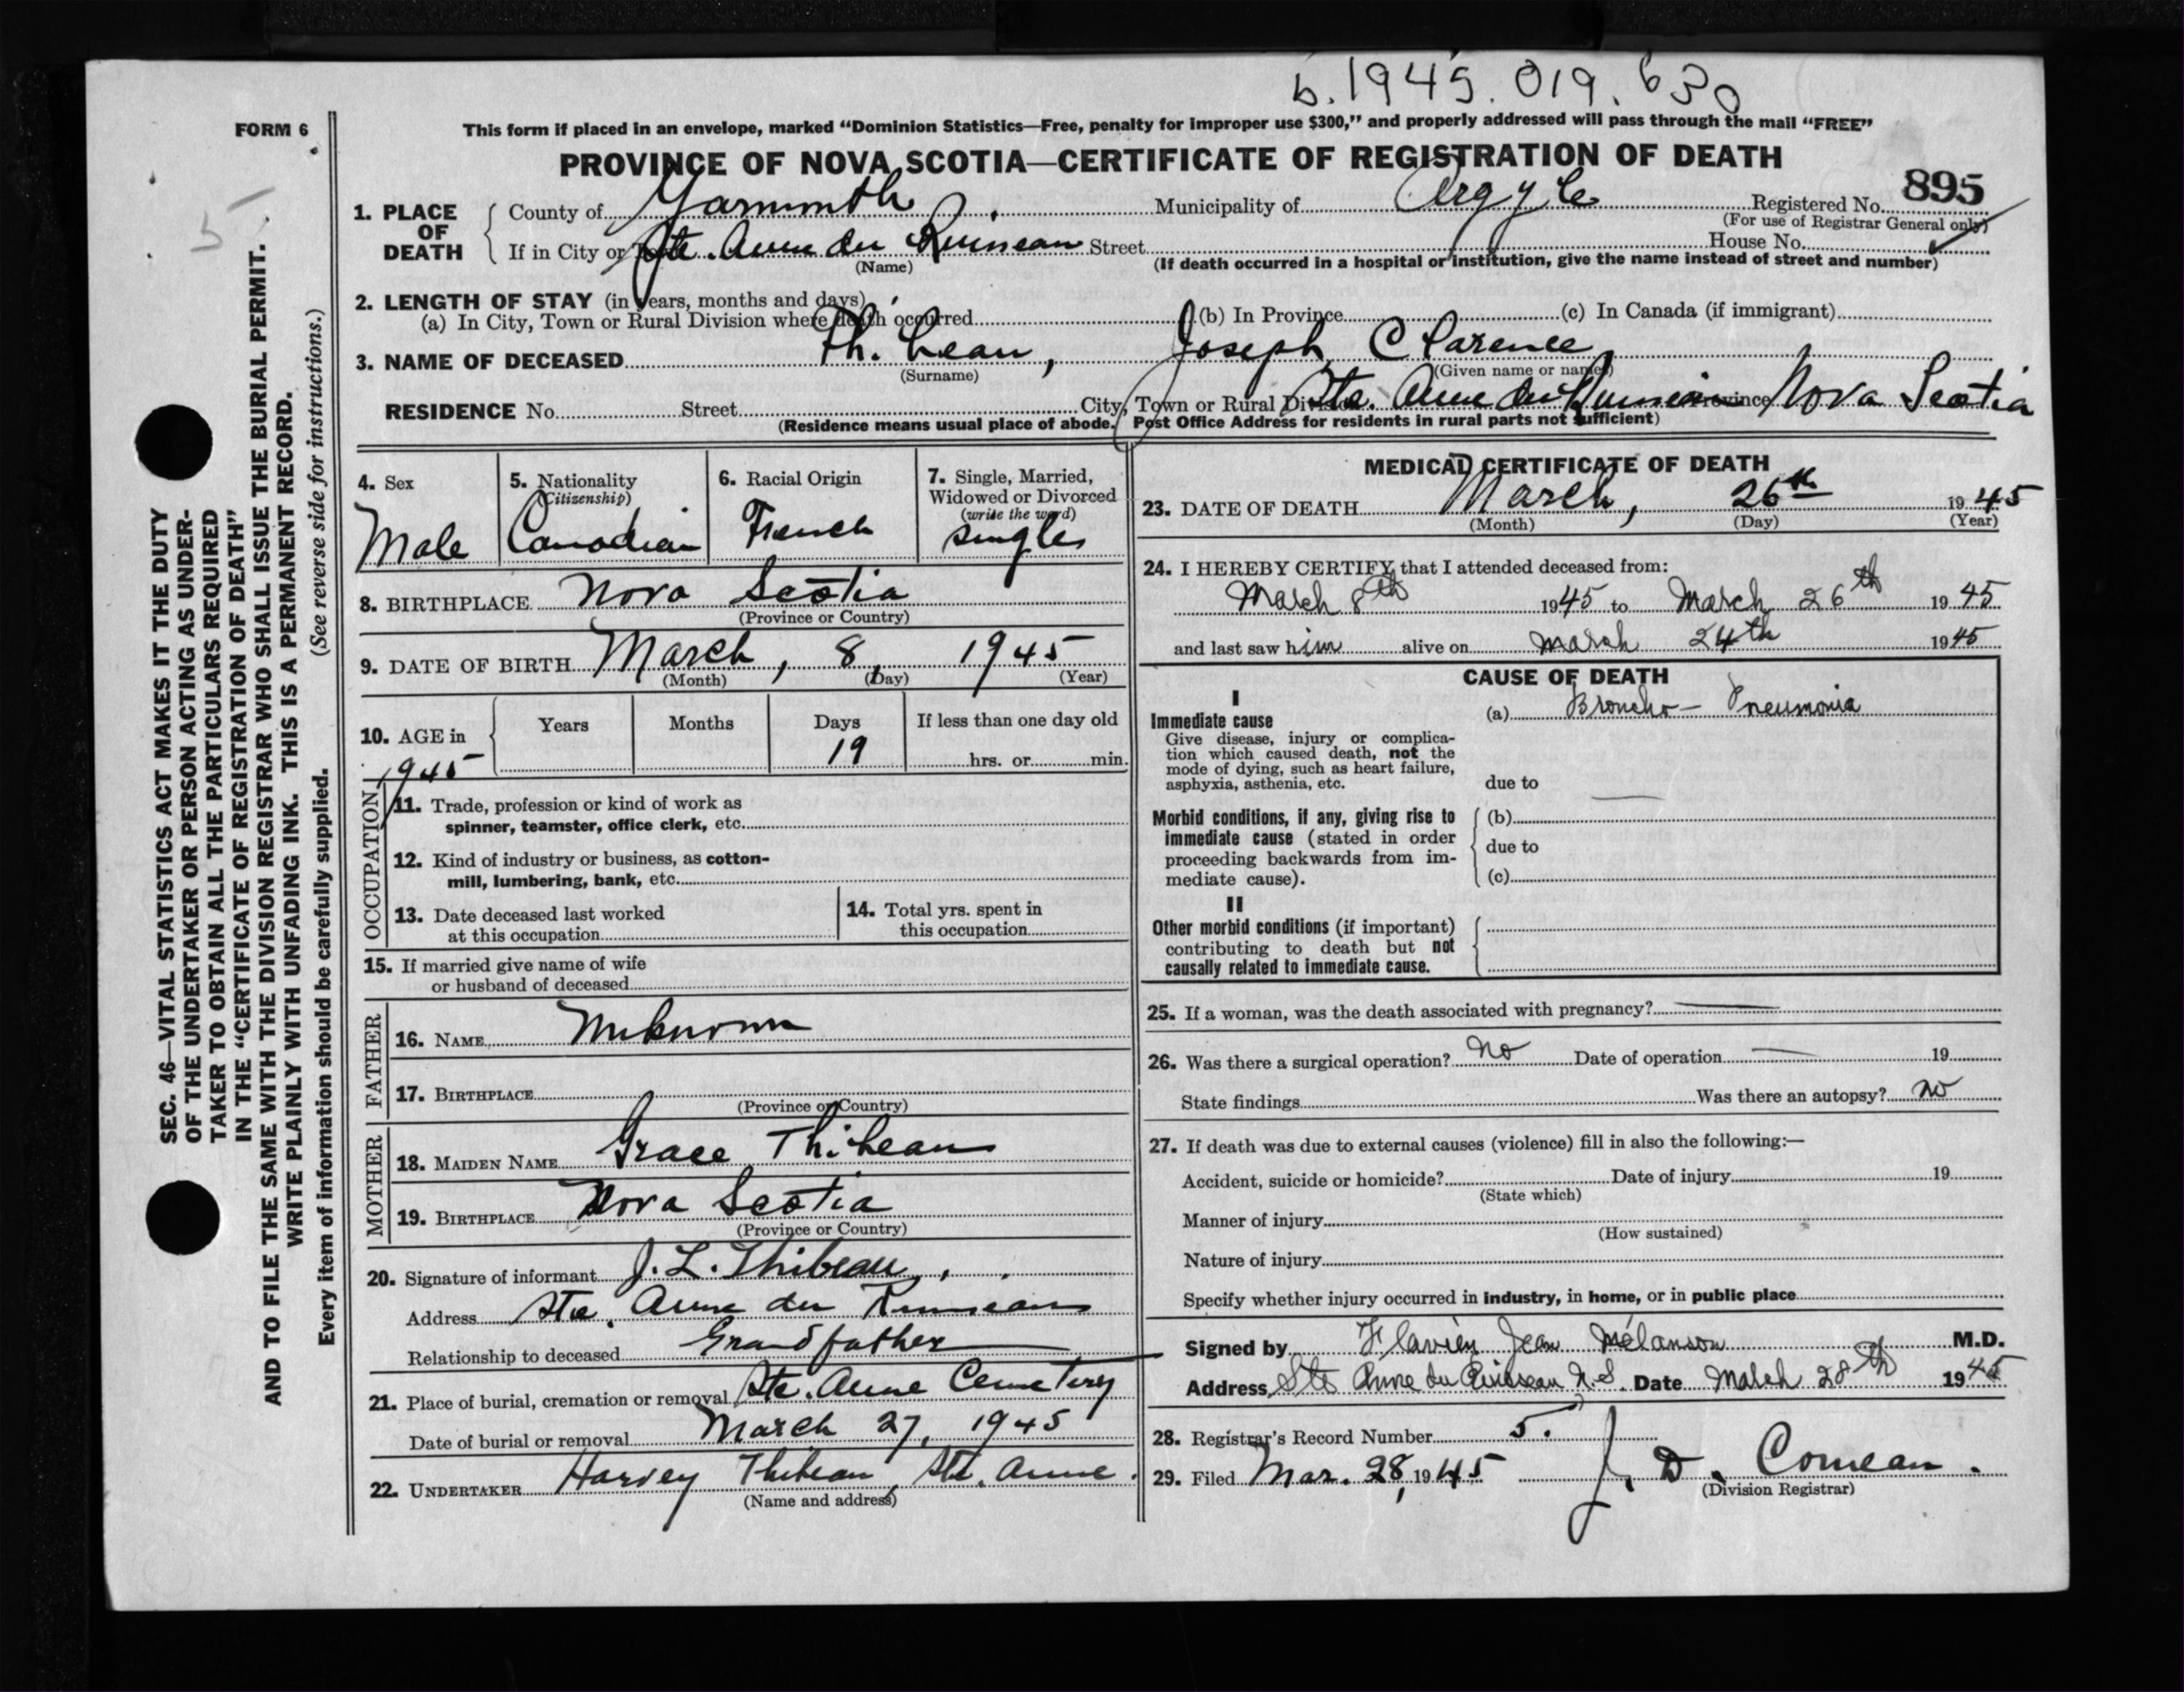 b. 1945. 019. 630
FORM 6
This form if placed in an envelope, marked “Dominion Statistics—Free, penalty for improper use $300,” and properly addressed will pass through the mail “FREE”
PROVINCE OF NOVA SCOTIA—CERTIFICATE OF REGISTRATION OF DEATH
5
SEC. 46—VITAL STATISTICS ACT MAKES IT THE DUTY
OF THE UNDERTAKER OR PERSON ACTING AS UNDER-
TAKER TO OBTAIN ALL THE PARTICULARS REQUIRED
IN THE “CERTIFICATE OF REGISTRATION OF DEATH”
AND TO FILE THE SAME WITH THE DIVISION REGISTRAR WHO SHALL ISSUE THE BURIAL PERMIT.
WRITE PLAINLY WITH UNFADING INK. THIS IS A PERMANENT RECORD.
Every item of information should be carefully supplied. (See reverse side for instructions.)
1. PLACE OF DEATH
County of Yarmouth Municipality of Argyle Registered No. 895
(For use of Registrar General only)
If in City or Ste. Anne du Ruisseau Street House No.
(Name) (If death occurred in a hospital or institution, give the name instead of street and number)
2. LENGTH OF STAY (in years, months and days)
(a) In City, Town or Rural Division where death occurred (b) In Province (c) In Canada (if immigrant)
3. NAME OF DECEASED Thibeau, Joseph Clarence
(Surname) (Given name or names)
RESIDENCE No. Street City, Town or Rural Division Ste. Anne du Ruisseau Province Nova Scotia
(Residence means usual place of abode. Post Office Address for residents in rural parts not sufficient)
4. Sex
Male
5. Nationality
(Citizenship)
Canadian
6. Racial Origin
French
7. Single, Married,
Widowed or Divorced
(write the word)
single
8. BIRTHPLACE Nova Scotia
(Province or Country)
9. DATE OF BIRTH March, 8, 1945
(Month) (Day) (Year)
10. AGE in 1945
Years Months Days If less than one day old
19 hrs. or min.
OCCUPATION
11. Trade, profession or kind of work as
spinner, teamster, office clerk, etc.
12. Kind of industry or business, as cotton-
mill, lumbering, bank, etc.
13. Date deceased last worked
at this occupation
14. Total yrs. spent in
this occupation
15. If married give name of wife
or husband of deceased
FATHER
16. NAME Unknown
17. BIRTHPLACE
(Province or Country)
MOTHER
18. MAIDEN NAME Grace Thibeau
19. BIRTHPLACE Nova Scotia
(Province or Country)
20. Signature of informant J. L. Thibeau
Address Ste. Anne du Ruisseau
Relationship to deceased Grandfather
21. Place of burial, cremation or removal Ste. Anne Cemetery
Date of burial or removal March 27, 1945
22. UNDERTAKER Harvey Thibeau, Ste. Anne.
(Name and address)
MEDICAL CERTIFICATE OF DEATH
23. DATE OF DEATH March, 26th 1945
(Month) (Day) (Year)
24. I HEREBY CERTIFY that I attended deceased from:
March 8th 1945 to March 26th 1945
and last saw him alive on March 24th 1945
CAUSE OF DEATH
I
Immediate cause
Give disease, injury or complica-
tion which caused death, not the
mode of dying, such as heart failure,
asphyxia, asthenia, etc.
(a) Broncho-Pneumonia
due to
Morbid conditions, if any, giving rise to
immediate cause (stated in order
proceeding backwards from im-
mediate cause).
(b)
due to
(c)
II
Other morbid conditions (if important)
contributing to death but not
causally related to immediate cause.
25. If a woman, was the death associated with pregnancy?
26. Was there a surgical operation? No Date of operation — 19
State findings Was there an autopsy? No
27. If death was due to external causes (violence) fill in also the following:—
Accident, suicide or homicide? Date of injury 19
(State which)
Manner of injury
(How sustained)
Nature of injury
Specify whether injury occurred in industry, in home, or in public place
Signed by Flavien Jean Mélanson M.D.
Address Ste Anne du Ruisseau N.S. Date March 28th 1945
28. Registrar's Record Number 5.
29. Filed Mar. 28, 1945 J. D. Comeau.
(Division Registrar)